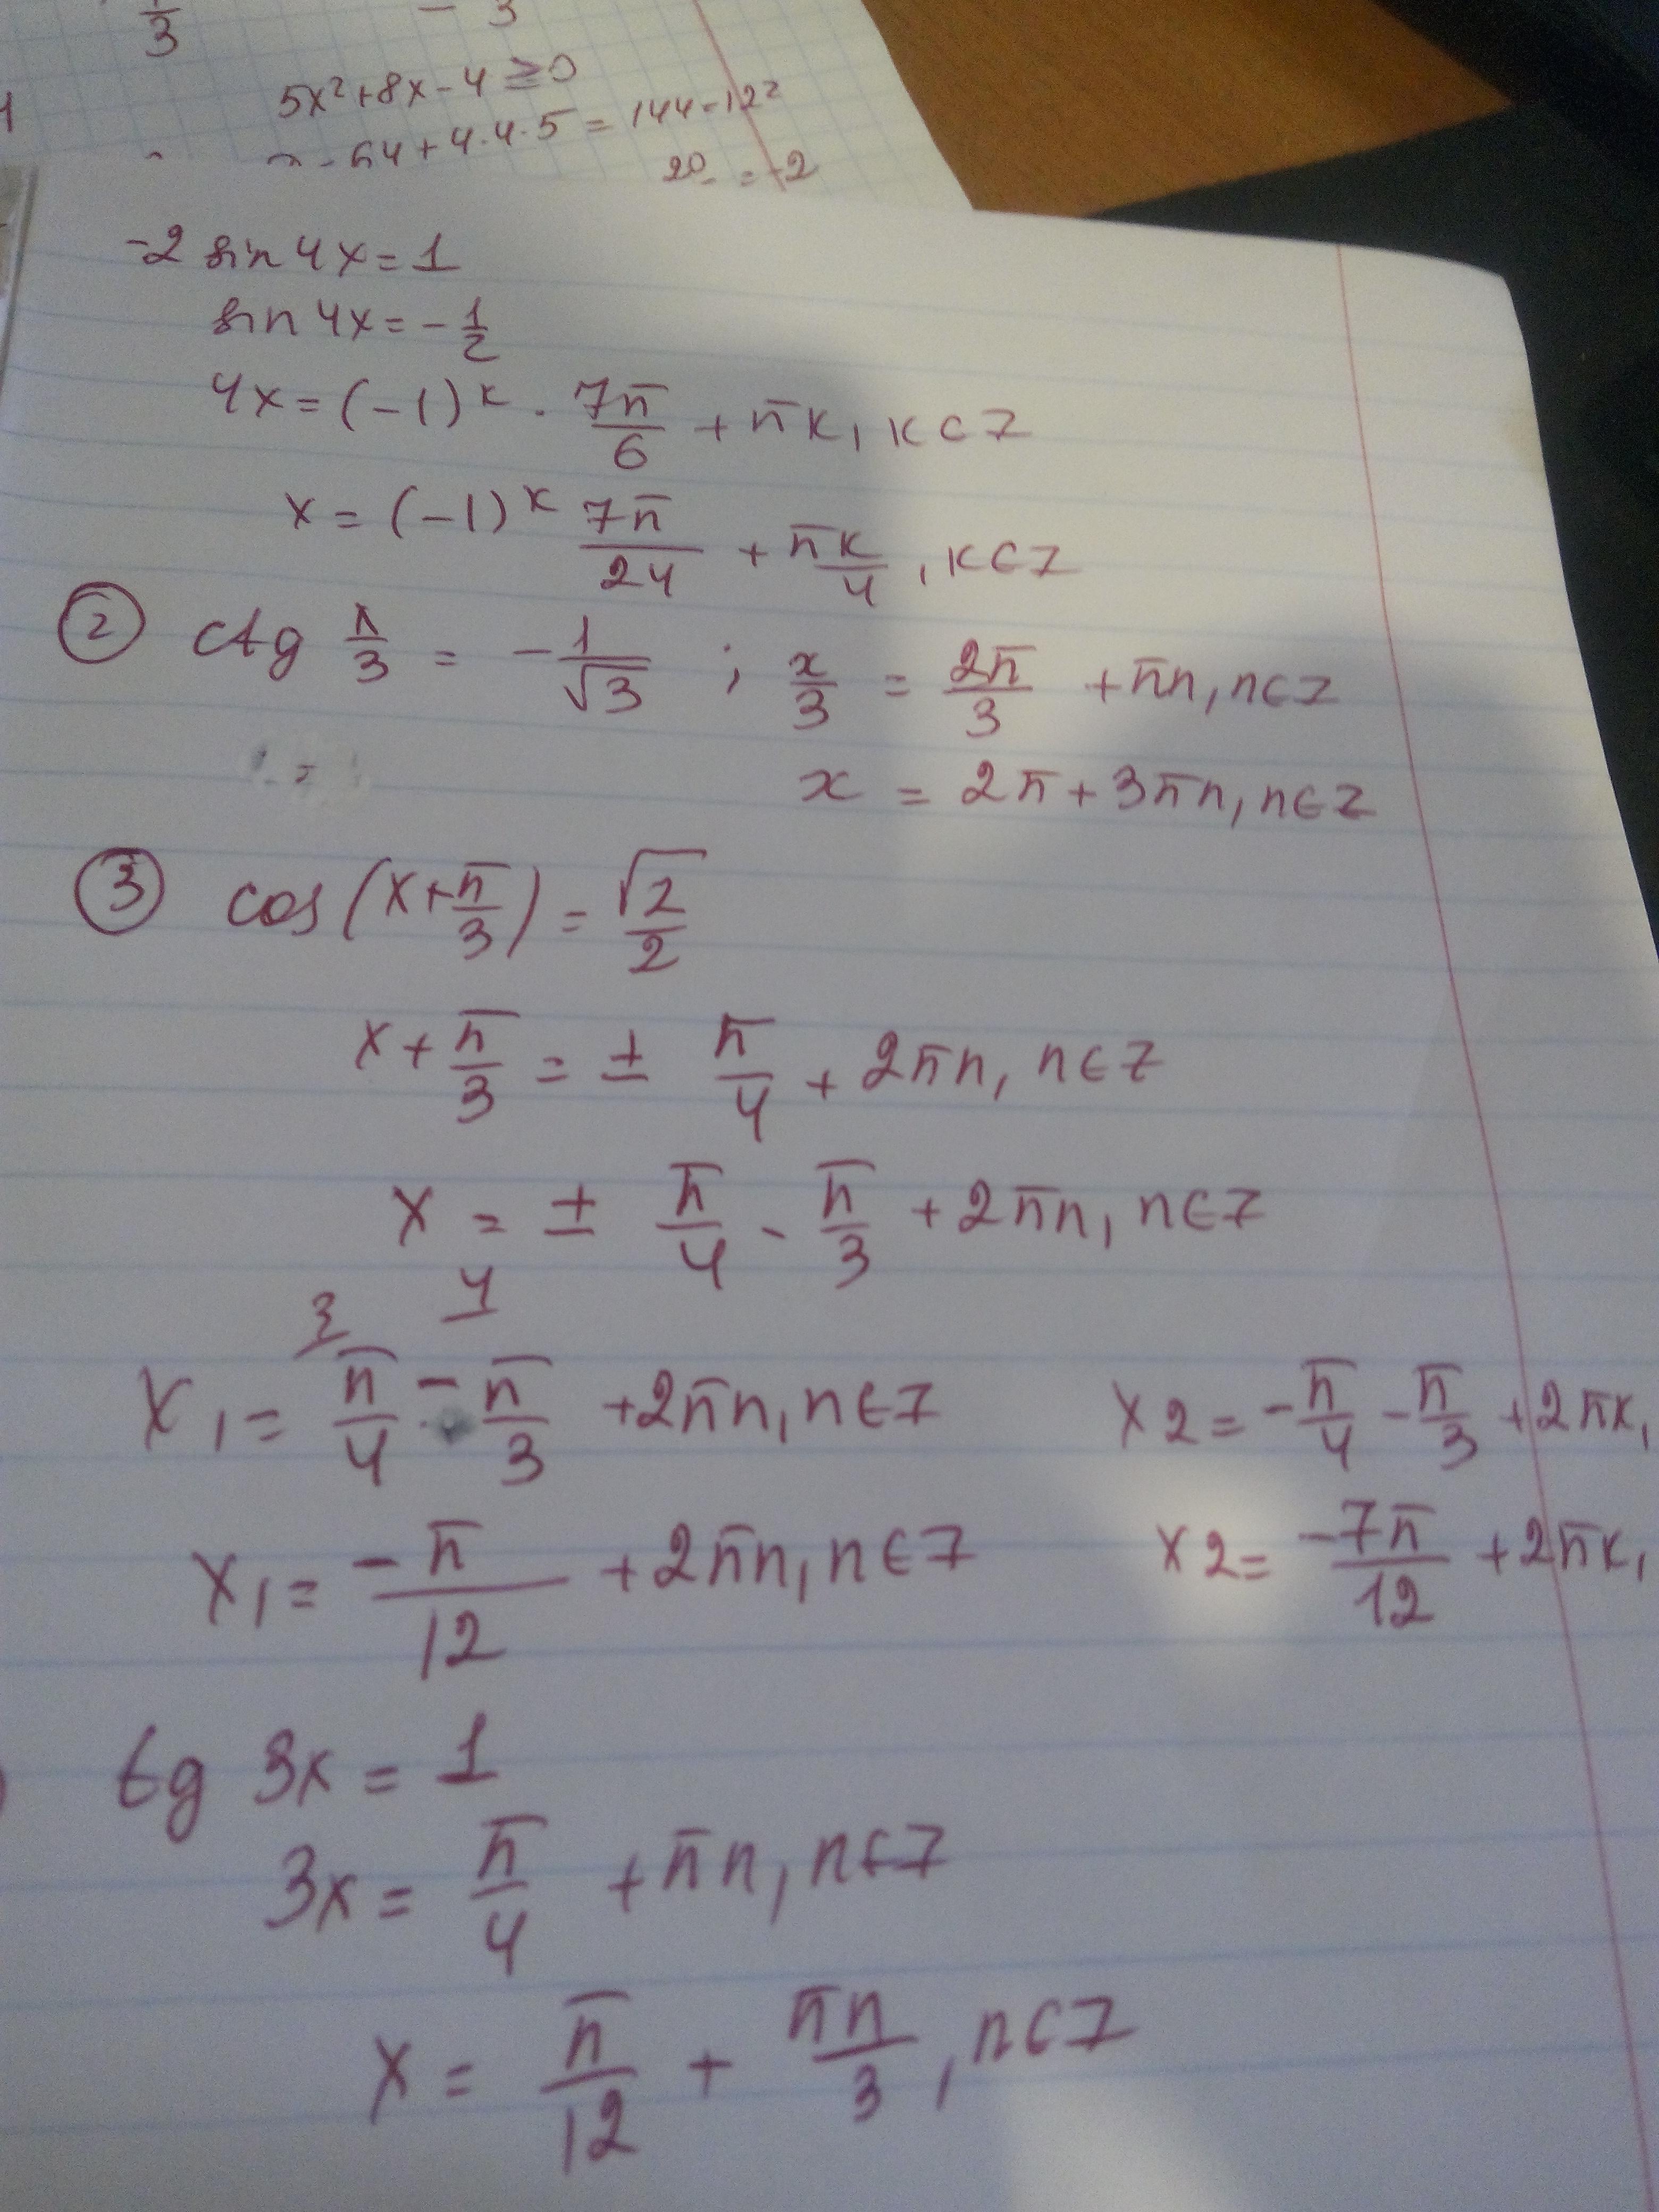 1/3 - 3
5x²+8x-4 ≥ 0
64+4·4·5 = 144=12²
20 = -2
-2 sin 4x = 1
sin 4x = -1/2
4x = (-1)ᵏ · 7π/6 + πk, k∈Z
x = (-1)ᵏ 7π/24 + πk/4, k∈Z
② ctg x/3 = -1/√3 ; x/3 = 2π/3 + πn, n∈Z
x = 2π + 3πn, n∈Z
③ cos(x+π/3) = √2/2
x + π/3 = ± π/4 + 2πn, n∈Z
x = ± π/4 - π/3 + 2πn, n∈Z
3 4
x₁ = π/4 - π/3 + 2πn, n∈Z x₂ = -π/4 - π/3 + 2πk,
x₁ = -π/12 + 2πn, n∈Z x₂ = -7π/12 + 2πk,
tg 3x = 1
3x = π/4 + πn, n∈Z
x = π/12 + πn/3, n∈Z